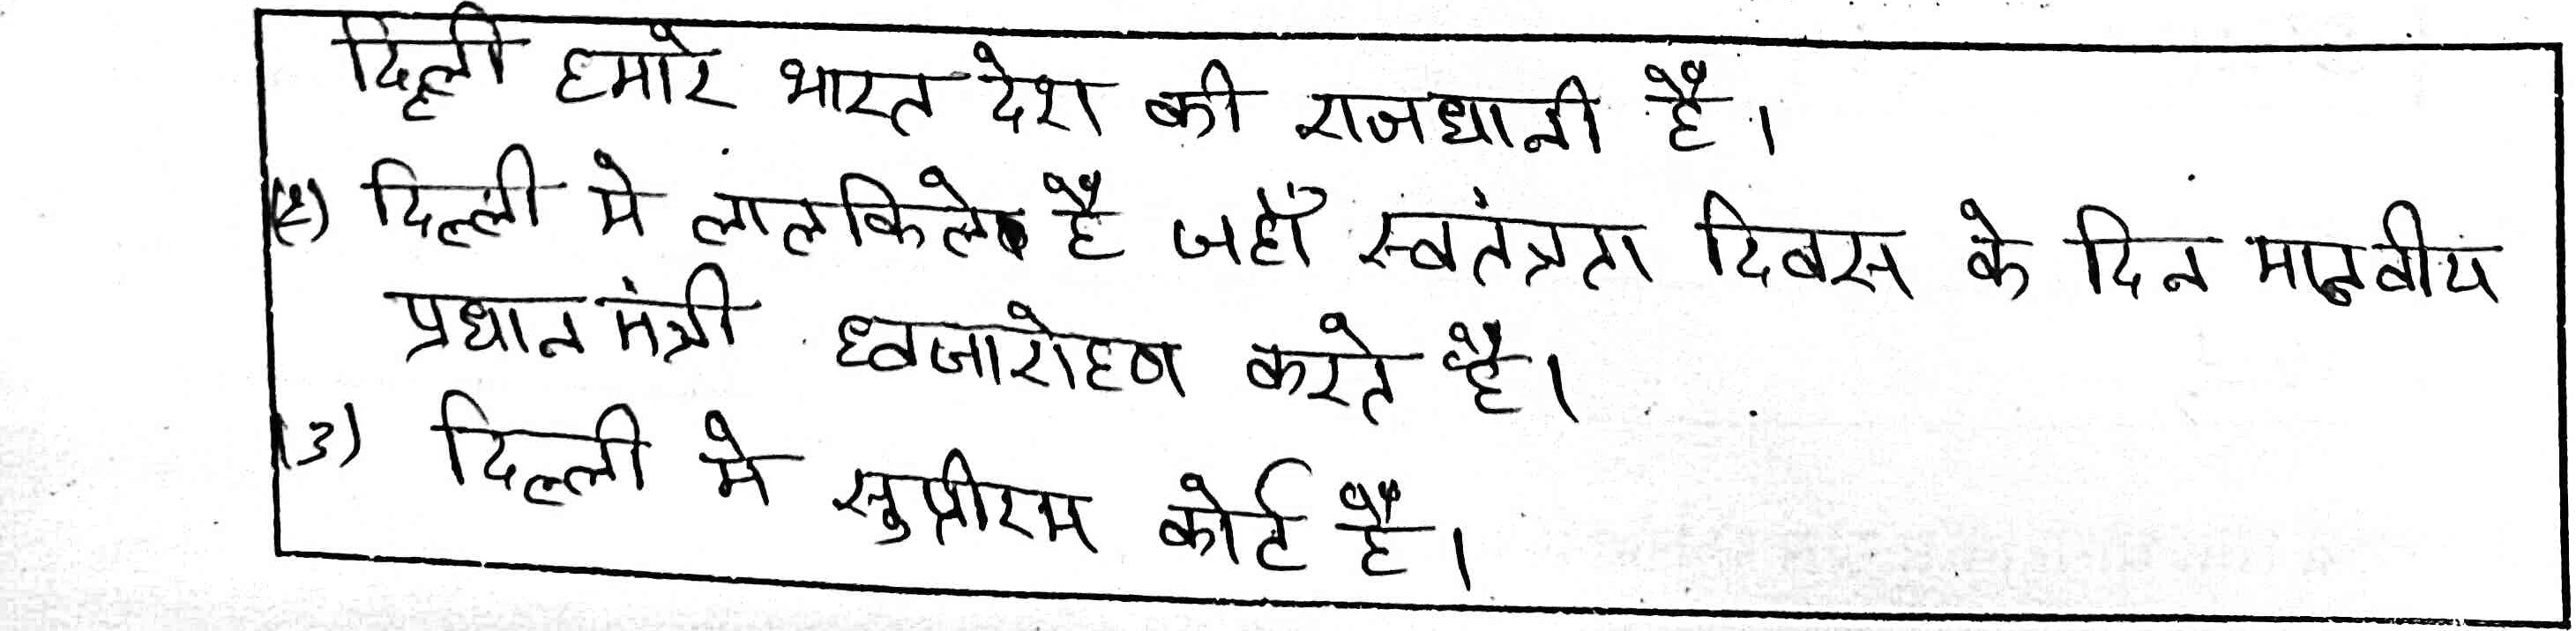 दिल्ली हमारे भारत देश की राजधानी है।
(2) दिल्ली मे लालकिले है जहाँ स्वतंत्रता दिवस के दिन माननीय
प्रधान मंत्री ध्वजारोहण करते है।
(3) दिल्ली मे सुप्रीरम कोर्ट है।